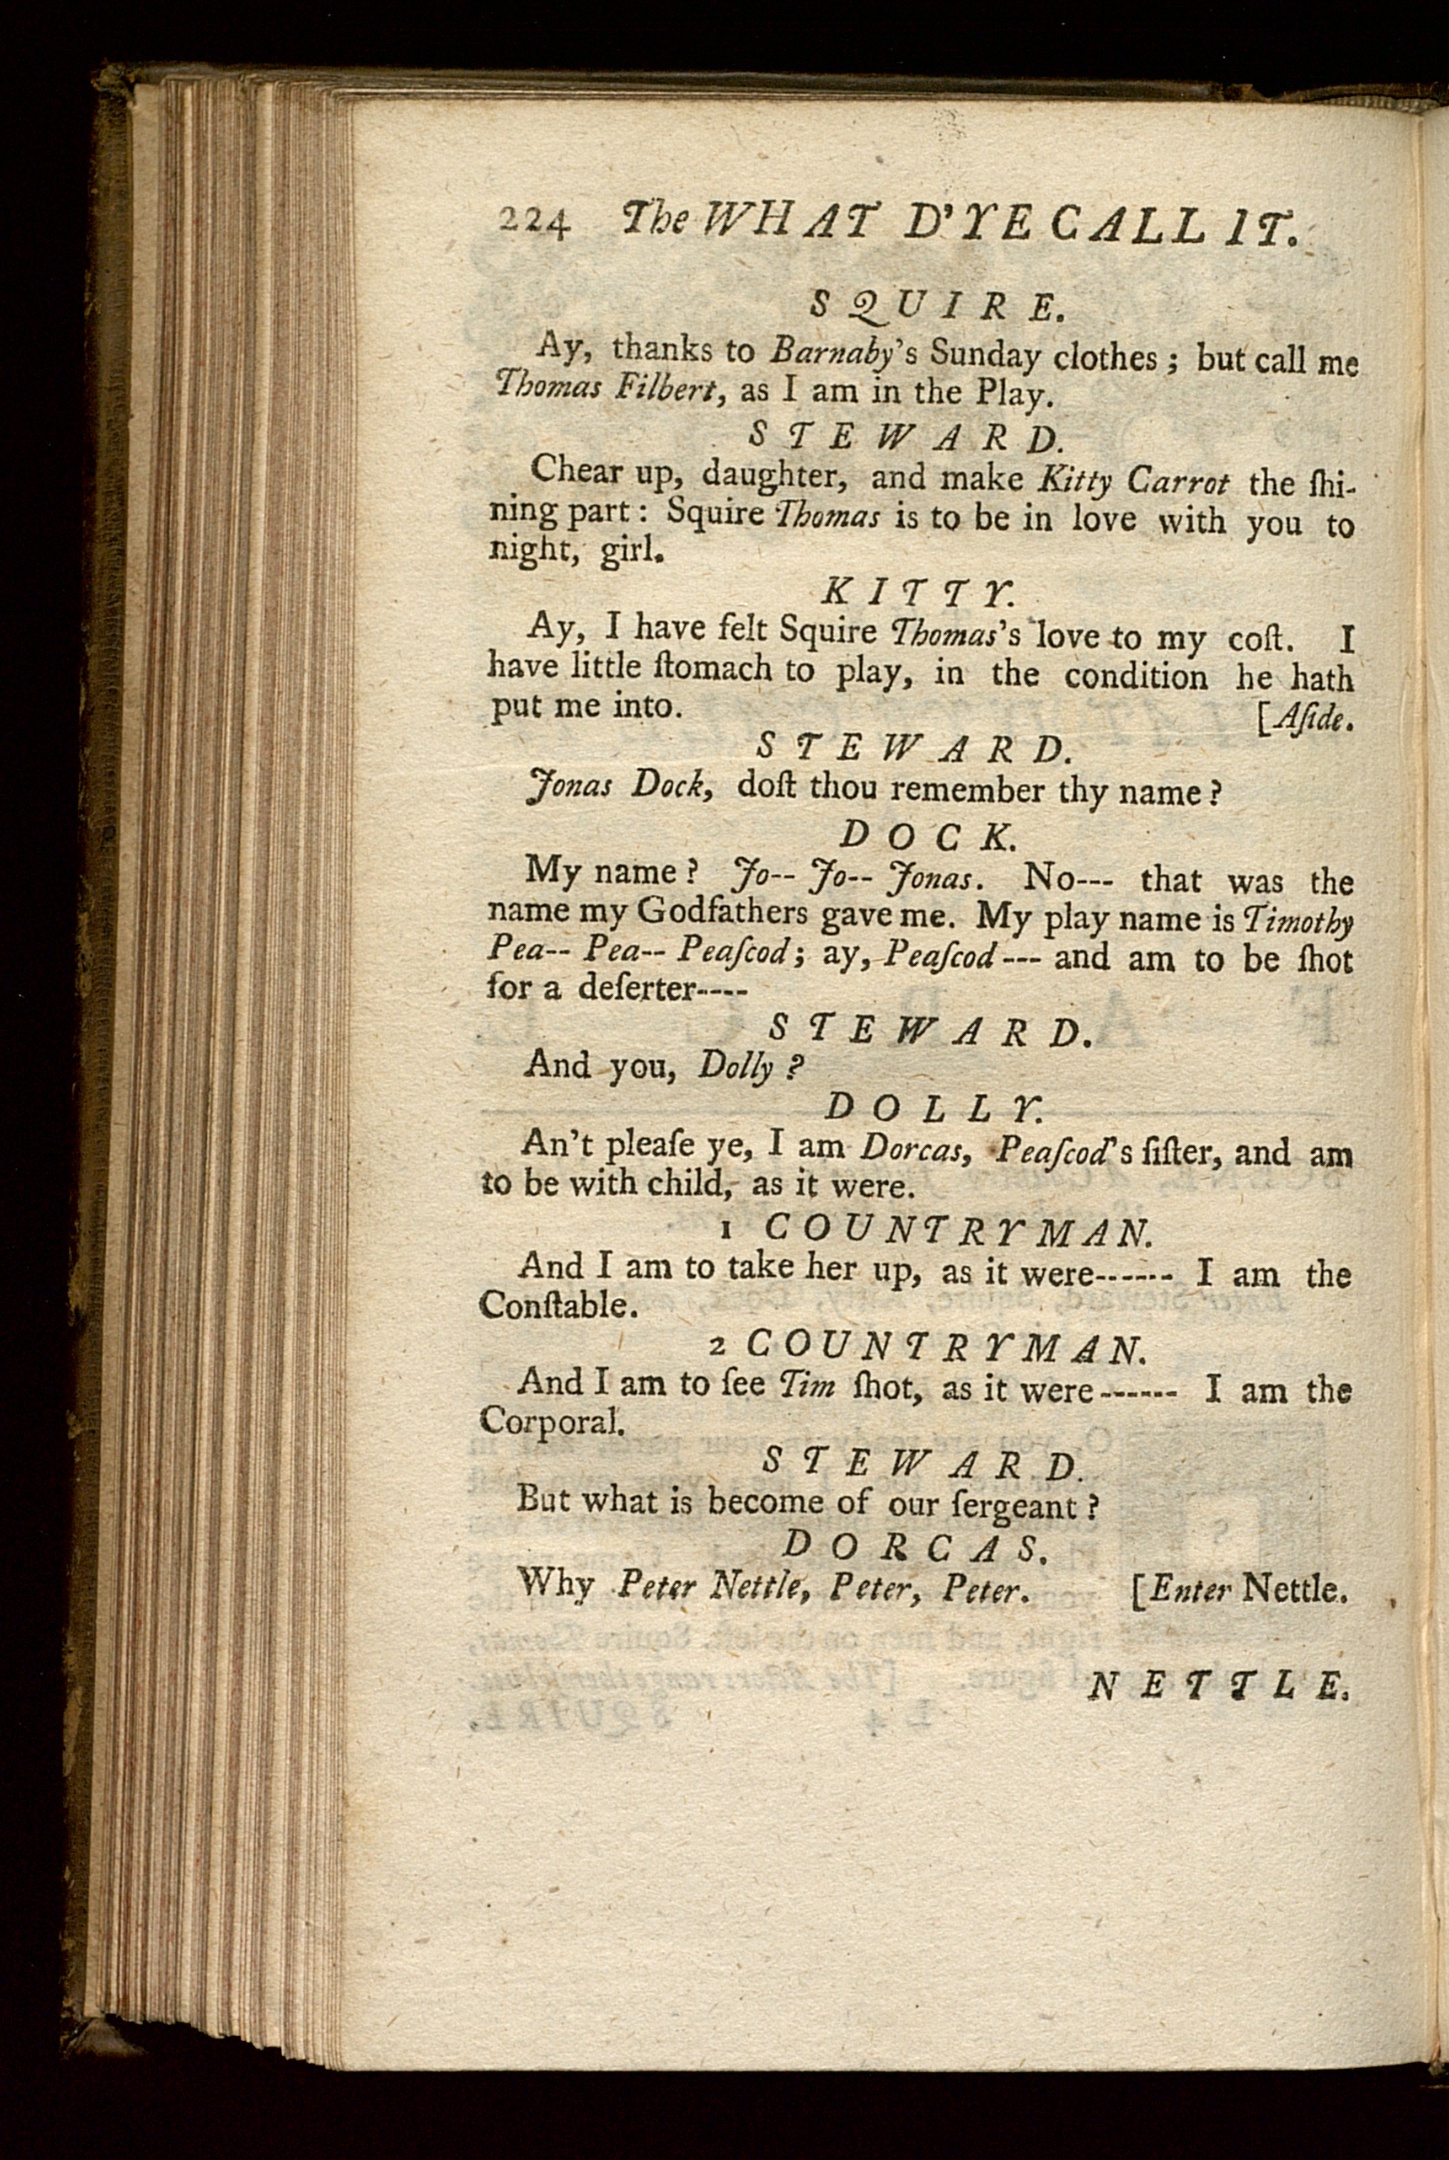 224 The WHAT D'YE CALL IT.
SQUIRE.
Ay, thanks to Barnaby's Sunday clothes; but call me
Thomas Filbert, as I am in the Play.
STEWARD.
Chear up, daughter, and make Kitty Carrot the ſhi-
ning part: Squire Thomas is to be in love with you to
night, girl.
KITTY.
Ay, I have felt Squire Thomas's love to my coſt. I
have little ſtomach to play, in the condition he hath
put me into. [Aſide.
STEWARD.
Jonas Dock, doſt thou remember thy name?
DOCK.
My name? Jo-- Jo-- Jonas. No--- that was the
name my Godfathers gave me. My play name is Timothy
Pea-- Pea-- Peaſcod; ay, Peaſcod --- and am to be ſhot
for a deſerter----
STEWARD.
And you, Dolly?
DOLLY.
An't pleaſe ye, I am Dorcas, Peaſcod's ſiſter, and am
to be with child, as it were.
1 COUNTRYMAN.
And I am to take her up, as it were------ I am the
Conſtable.
2 COUNTRYMAN.
And I am to ſee Tim ſhot, as it were------ I am the
Corporal.
STEWARD.
But what is become of our ſergeant?
DORCAS.
Why Peter Nettle, Peter, Peter. [Enter Nettle.
NETTLE.